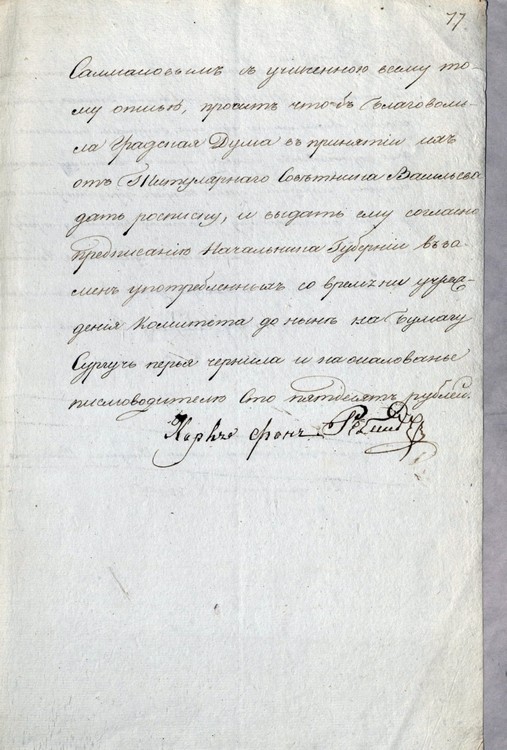 77
Салмановымъ съ учиненною всему то-
му описью, проситъ чтобъ благоволи-
ла Градская Дума въ принятіи ихъ
отъ Титулярнаго Совѣтника Васильева
дать росписку, и выдать ему согласно
предписанію Начальника Губерніи въ за-
менъ употребленныхъ со времѣни учреж-
денія Комитѣта до нынѣ на бумагу
Сургучь перья чернила и на жалованье
писмоводителю Сто пятдесятъ рублей.
фонъ